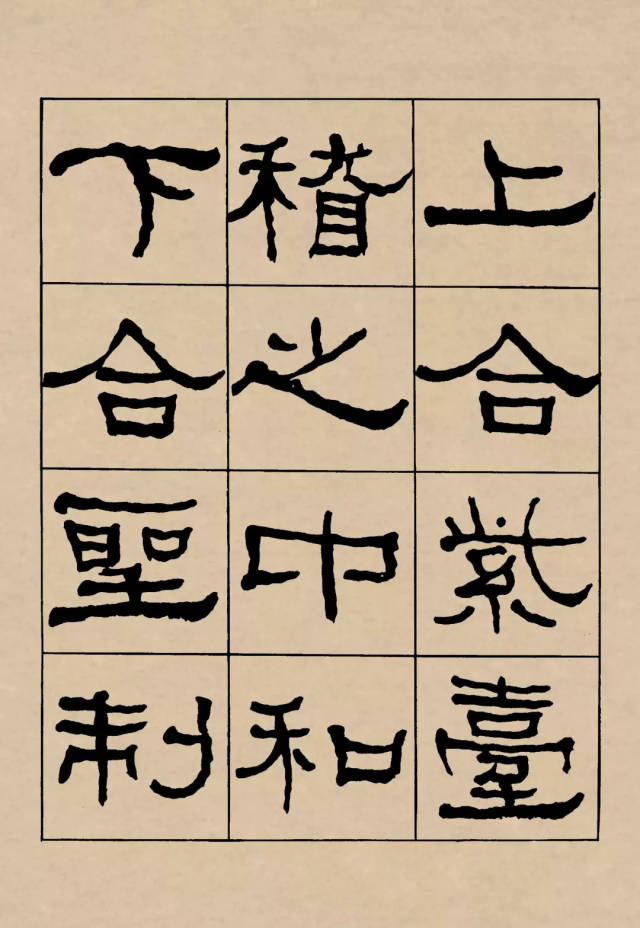 上合紫臺
稽之中和
下合聖制